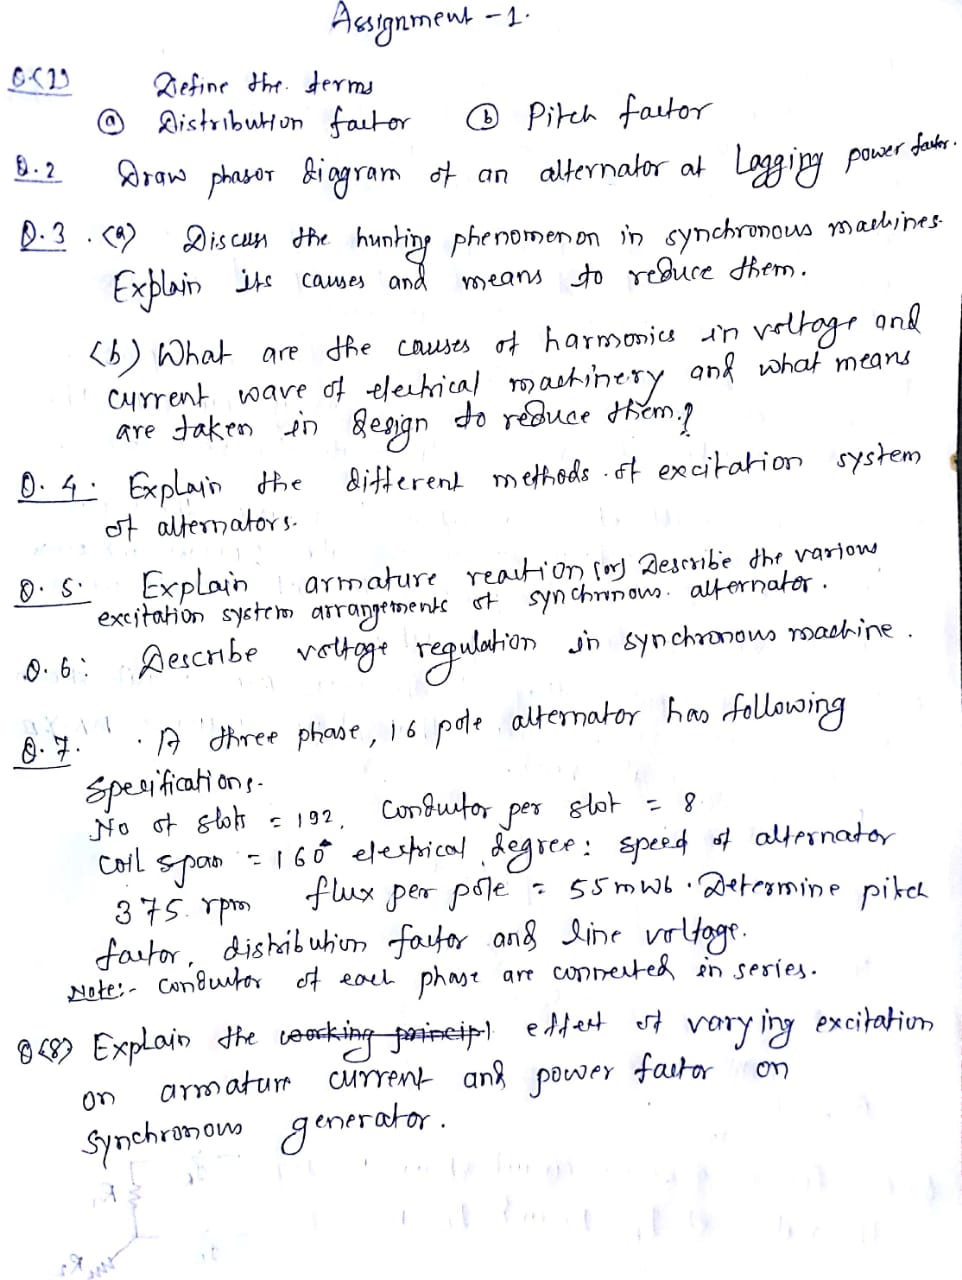 Assignment -1.
Q.(1) Define the terms
(a) Distribution factor (b) Pitch factor
Q.2 Draw phasor diagram of an alternator at Lagging power factor.
Q.3 . (a) Discuss the hunting phenomenon in synchronous machines.
Explain its causes and means to reduce them.
(b) What are the causes of harmonics in voltage and
current wave of electrical machinery and what means
are taken in design to reduce them.?
Q. 4. Explain the different methods of excitation system
of alternators.
Q. 5. Explain armature reaction (or) Describe the various
excitation system arrangements of synchronous alternator.
Q. 6: Describe voltage regulation in synchronous machine.
Q. 7. A three phase, 16 pole alternator has following
specifications.
No of slots = 192, Conductor per slot = 8
Coil span = 160° electrical degree: speed of alternator
375 rpm flux per pole = 55 mwb. Determine pitch
factor, distribution factor and line voltage.
Note:- Conductor of each phase are connected in series.
Q(8) Explain the working principl effect of varying excitation
on armature current and power factor on
synchronous generator.